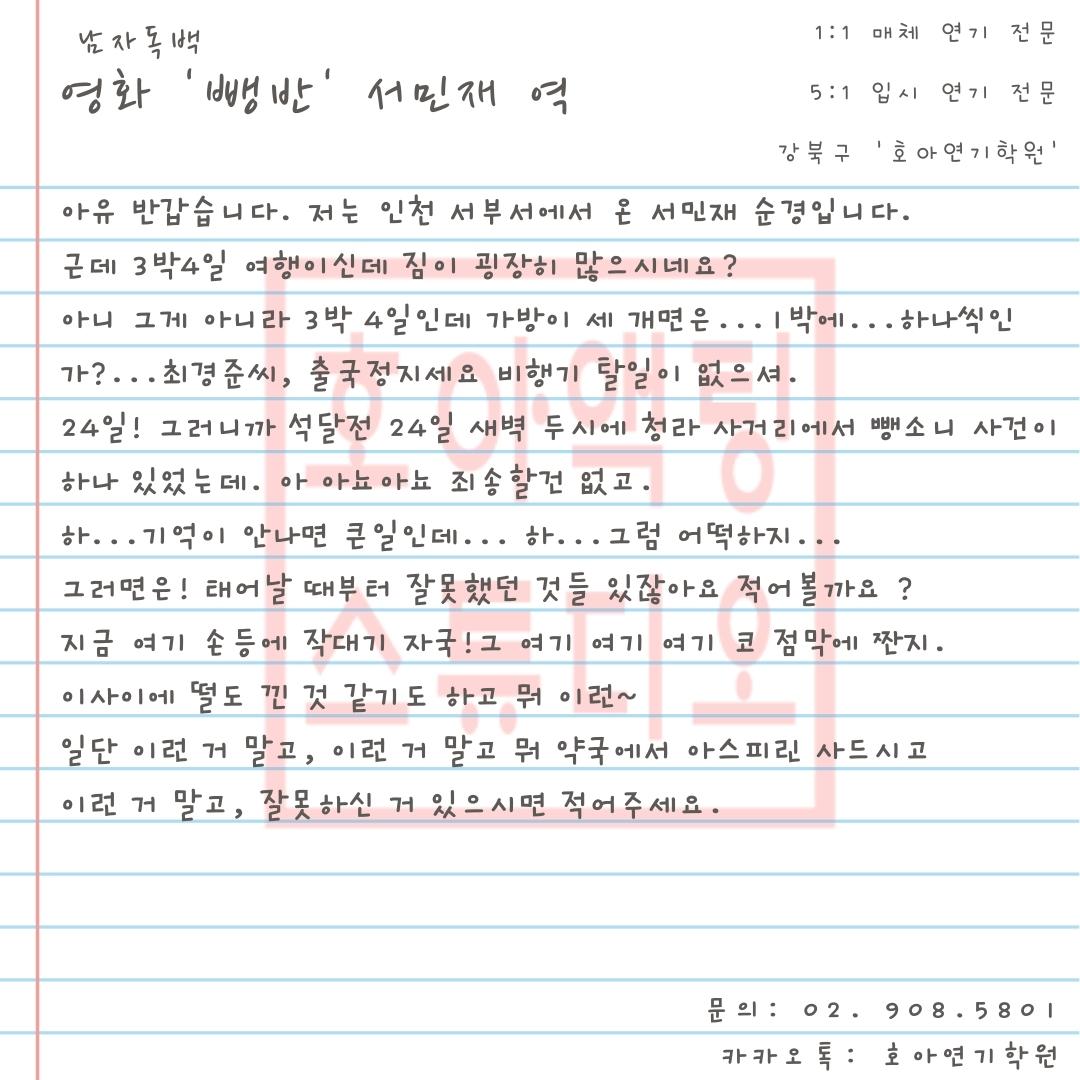 남자독백
영화 '뺑반' 서민재 역
1:1 매체 연기 전문
5:1 입시 연기 전문
강북구 '호아연기학원'
아유 반갑습니다. 저는 인천 서부서에서 온 서민재 순경입니다.
근데 3박4일 여행이신데 짐이 굉장히 많으시네요?
아니 그게 아니라 3박 4일인데 가방이 세 개면은...1박에...하나씩인
가?...최경준씨, 출국정지세요 비행기 탈일이 없으셔.
24일! 그러니까 석달전 24일 새벽 두시에 청라 사거리에서 뺑소니 사건이
하나 있었는데. 아 아뇨아뇨 죄송할건 없고.
하...기억이 안나면 큰일인데... 하...그럼 어떡하지...
그러면은! 태어날 때부터 잘못했던 것들 있잖아요 적어볼까요 ?
지금 여기 손등에 작대기 자국!그 여기 여기 여기 코 점막에 짠지.
이사이에 떨도 낀 것 같기도 하고 뭐 이런~
일단 이런 거 말고, 이런 거 말고 뭐 약국에서 아스피린 사드시고
이런 거 말고, 잘못하신 거 있으시면 적어주세요.
호아액팅
스튜디오
문의: 02. 908.5801
카카오톡: 호아연기학원